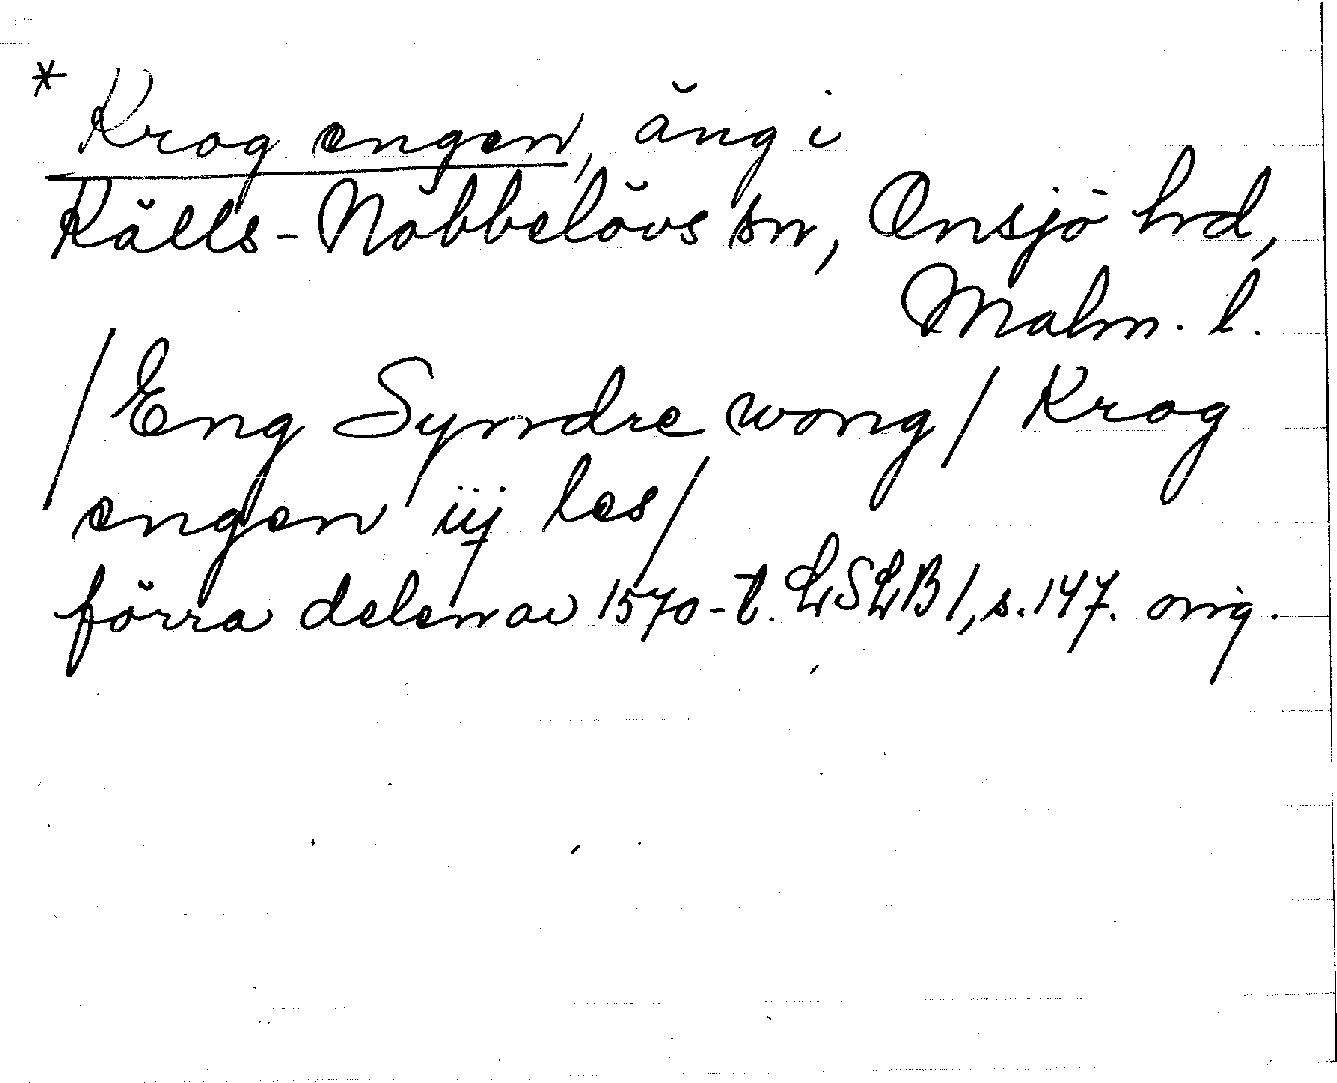 * Krog engen, äng i
Källs-Nöbbelövs sn, Onsjö hd,
Malm. l.
/Eng Syndre wong/ Krog
engen iij les/
förra delen av 1570-t. LSLB 1, s. 147. orig.